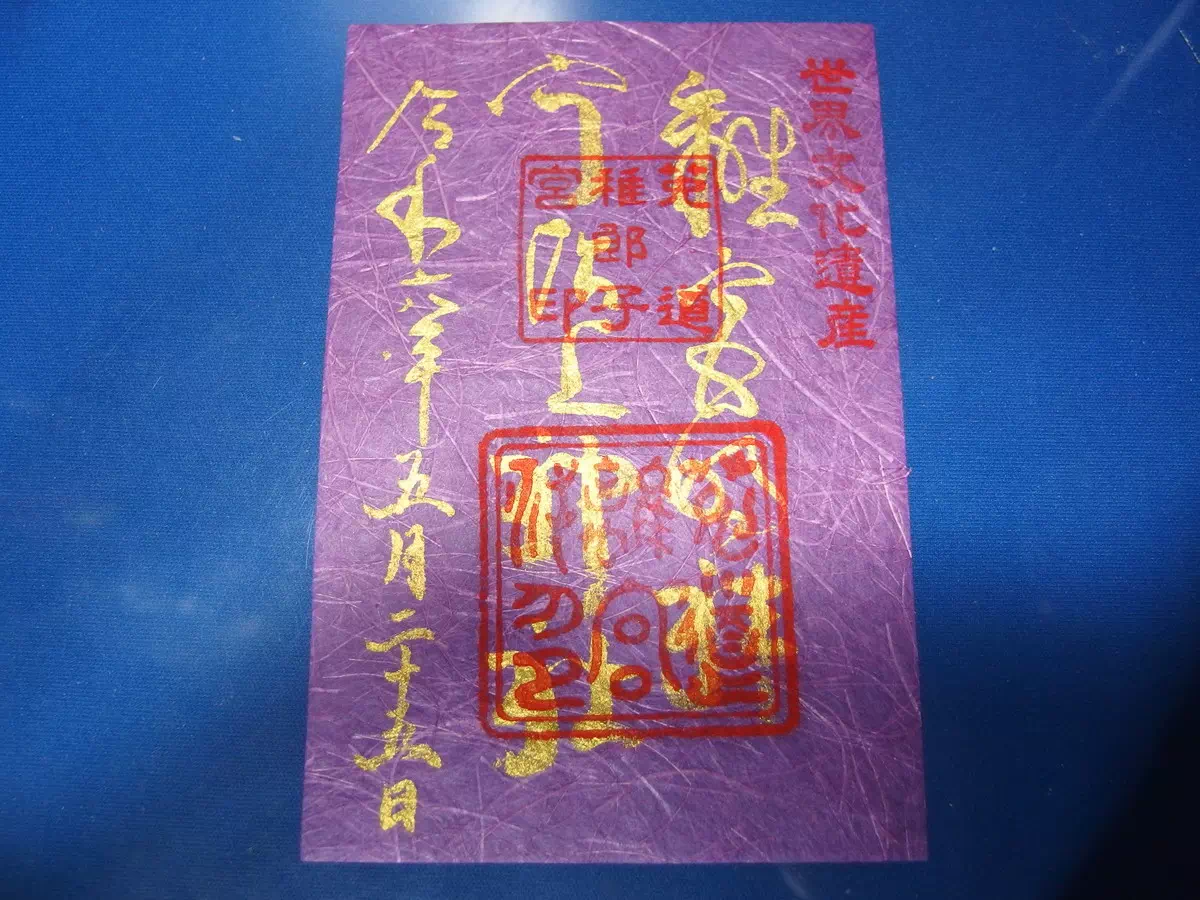 世界文化遺産
離宮 社
宇治上神社
令和六年五月二十五日
菟道
稚郎子
宮印